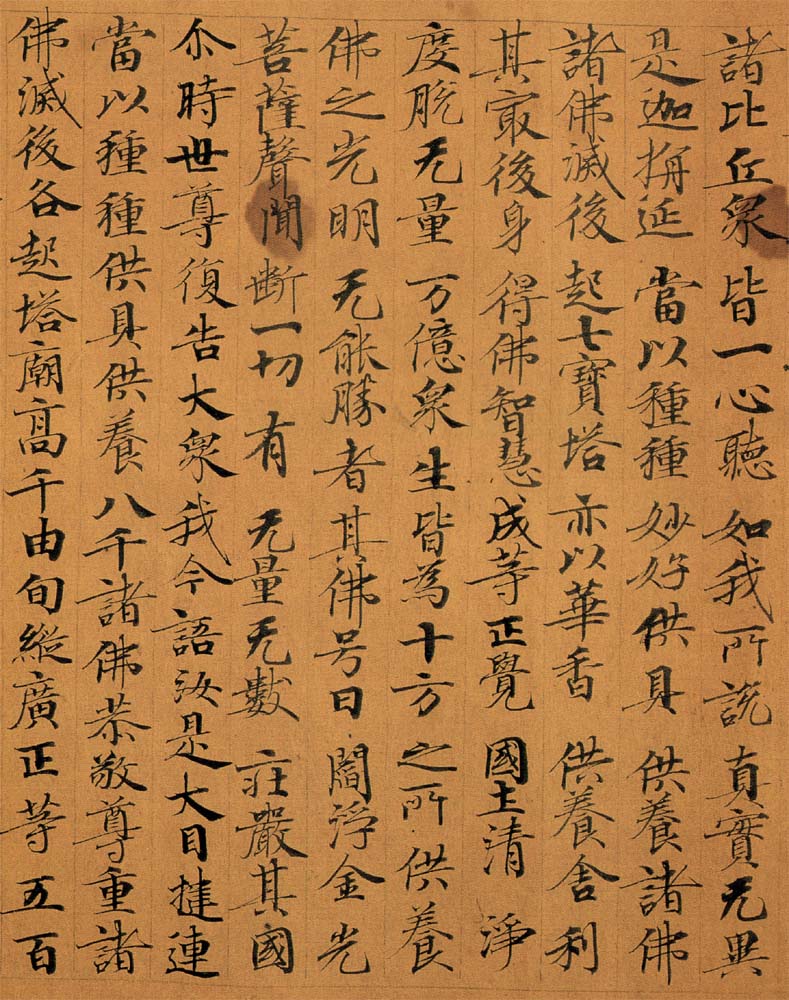 諸比丘衆 皆一心聽 如我所說 真實无異
是迦旃延 當以種種 妙好供具 供養諸佛
諸佛滅後 起七寶塔 亦以華香 供養舍利
其冣後身 得佛智慧 成等正覺 國土清淨
度脫无量 万億衆生 皆為十方 之所供養
佛之光明 无能勝者 其佛号曰 閻浮金光
菩薩聲聞 斷一切有 无量无數 莊嚴其國
尒時世尊復告大衆我今語汝是大目揵連
當以種種供具供養八千諸佛恭敬尊重諸
佛滅後各起塔廟高千由旬縱廣正等五百